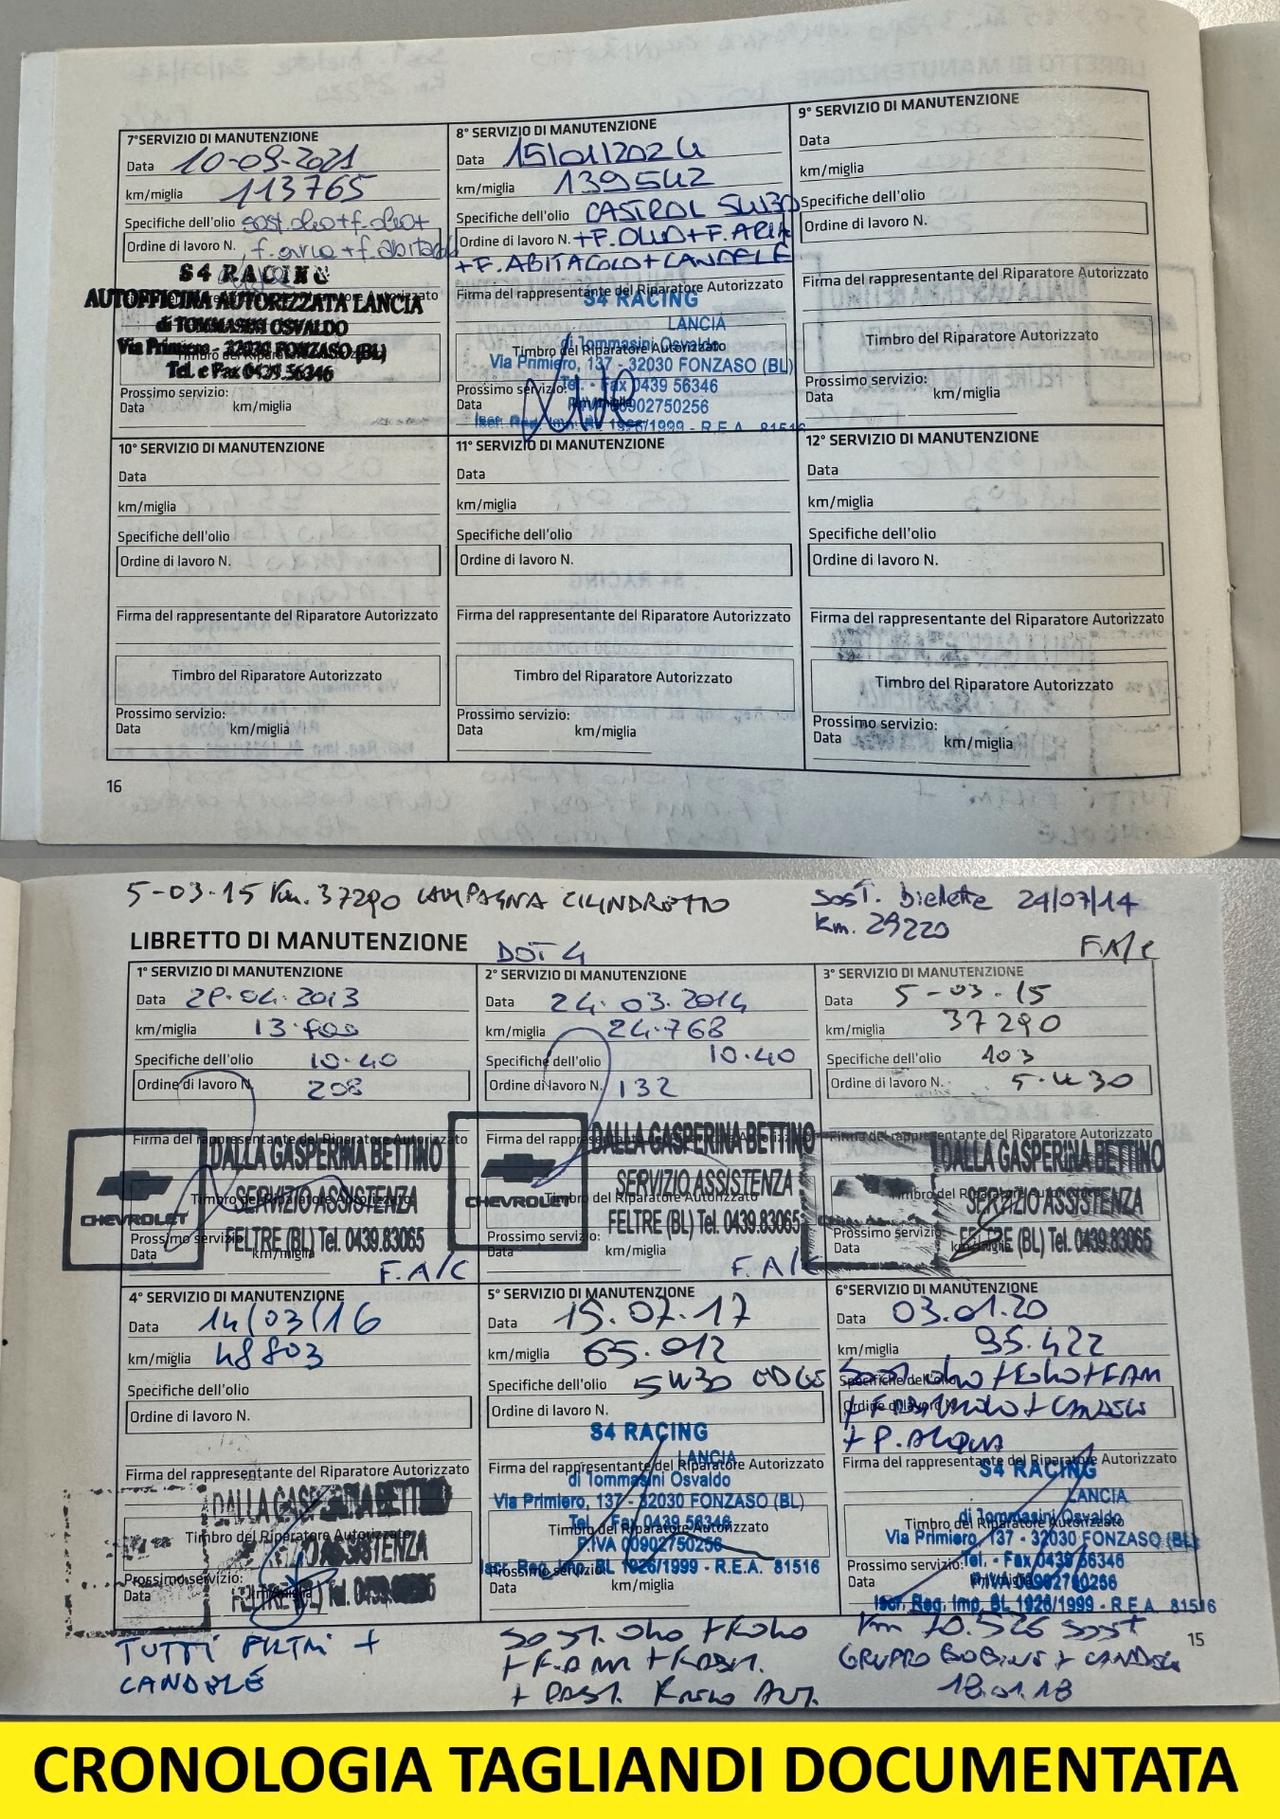 7°SERVIZIO DI MANUTENZIONE
Data 10-09-2021
km/miglia 113765
Specifiche dell'olio sost olio+f.olio+
Ordine di lavoro N. f.aria +f.abitacolo
S4 RACING
AUTOFFICINA AUTORIZZATA LANCIA
di TOMMASINI OSVALDO
Via Primiero - 32030 FONZASO (BL)
Tel. e Fax 0439.56346
Prossimo servizio:
Data km/miglia
8° SERVIZIO DI MANUTENZIONE
Data 15/01/2024
km/miglia 139542
Specifiche dell'olio CASTROL 5W30
Ordine di lavoro N. +F.OLIO+F.ARIA
+F.ABITACOLO+CANDELE
Firma del rappresentante del Riparatore Autorizzato
S4 RACING
LANCIA
di Tommasini Osvaldo
Timbro del Riparatore Autorizzato
Via Primiero, 137 - 32030 FONZASO (BL)
Tel. - Fax 0439 56346
Prossimo servizio:
Data
P.IVA 00902750256
Iscr. Reg. Imp. BL 1926/1999 - R.E.A. 81516
9° SERVIZIO DI MANUTENZIONE
Data
km/miglia
Specifiche dell'olio
Ordine di lavoro N.
Firma del rappresentante del Riparatore Autorizzato
Timbro del Riparatore Autorizzato
Prossimo servizio:
Data km/miglia
10° SERVIZIO DI MANUTENZIONE
Data
km/miglia
Specifiche dell'olio
Ordine di lavoro N.
Firma del rappresentante del Riparatore Autorizzato
Timbro del Riparatore Autorizzato
Prossimo servizio:
Data km/miglia
11° SERVIZIO DI MANUTENZIONE
Data
km/miglia
Specifiche dell'olio
Ordine di lavoro N.
Firma del rappresentante del Riparatore Autorizzato
Timbro del Riparatore Autorizzato
Prossimo servizio:
Data km/miglia
12° SERVIZIO DI MANUTENZIONE
Data
km/miglia
Specifiche dell'olio
Ordine di lavoro N.
Firma del rappresentante del Riparatore Autorizzato
Timbro del Riparatore Autorizzato
Prossimo servizio:
Data km/miglia
16
5-03-15 Km. 37290 CAMPAGNA CILINDRETTO
SOST. bielette 24/07/14
Km. 29220
F.A/C
LIBRETTO DI MANUTENZIONE
DOT 4
1° SERVIZIO DI MANUTENZIONE
Data 29.04.2013
km/miglia
Specifiche dell'olio 10-40
Ordine di lavoro N. 208
Firma del rappresentante del Riparatore Autorizzato
DALLA GASPERINA BETTINO
Timbro del Riparatore Autorizzato
SERVIZIO ASSISTENZA
CHEVROLET
FELTRE (BL) Tel. 0439.83065
Prossimo servizio:
Data km/miglia
F.A/C
2° SERVIZIO DI MANUTENZIONE
Data 24.03.2014
km/miglia 24.768
Specifiche dell'olio 10.40
Ordine di lavoro N. 132
Firma del rappresentante
DALLA GASPERINA BETTINO
SERVIZIO ASSISTENZA
CHEVROLET
Timbro del Riparatore Autorizzato
FELTRE (BL) Tel. 0439.83065
Prossimo servizio:
Data km/miglia
F.A/C
3° SERVIZIO DI MANUTENZIONE
Data 5-03-15
km/miglia 37290
Specifiche dell'olio 103
Ordine di lavoro N. 5.W30
Firma del rappresentante del Riparatore Autorizzato
DALLA GASPERINA BETTINO
Timbro del Riparatore Autorizzato
SERVIZIO ASSISTENZA
Prossimo servizio:
FELTRE (BL) Tel. 0439.83065
Data km/miglia
4° SERVIZIO DI MANUTENZIONE
Data 14/03/16
km/miglia 48803
Specifiche dell'olio
Ordine di lavoro N.
Firma del rappresentante del Riparatore Autorizzato
DALLA GASPERINA BETTINO
Timbro del Riparatore Autorizzato
ASSISTENZA
Prossimo servizio:
FELTRE (BL) Tel. 0439.
Data km/miglia
TUTTI FILTRI +
CANDELE
5° SERVIZIO DI MANUTENZIONE
Data 15.07.17
km/miglia 65.012
Specifiche dell'olio 5W30
Ordine di lavoro N.
S4 RACING
LANCIA
Firma del rappresentante del Riparatore Autorizzato
di Tommasini Osvaldo
Via Primiero, 137 - 32030 FONZASO (BL)
Tel. - Fax 0439 56346
Timbro del Riparatore Autorizzato
P.IVA 00902750256
Iscr. Reg. Imp. BL 1926/1999 - R.E.A. 81516
Prossimo servizio:
Data km/miglia
SOST. olio +F.olio
+ F.ARIA + F.ABIT.
+ PAST. FRENO ANT.
6° SERVIZIO DI MANUTENZIONE
Data 03.01.20
km/miglia 95.422
Specifiche dell'olio
SOST olio + F.olio + F.ARIA
Ordine di lavoro N.
+ F.ABITACOLO + CANDELE
+ P. ACQUA
Firma del rappresentante del Riparatore Autorizzato
S4 RACING
LANCIA
di Tommasini Osvaldo
Timbro del Riparatore Autorizzato
Via Primiero 137 - 32030 FONZASO (BL)
Prossimo servizio:
Tel. - Fax 0439 56346
Data km/miglia
P.IVA 00902750256
Iscr. Reg. Imp. BL 1926/1999 - R.E.A. 81516
Km 70.526 SOST
GRUPPO BOBINE + CANDELE
18.01.18
15
CRONOLOGIA TAGLIANDI DOCUMENTATA